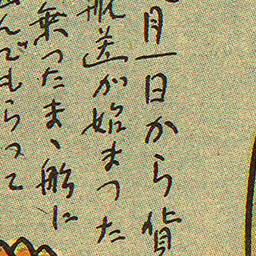 月一日から貨
航送が始まった
乗ったまゝ船に
んでもらって